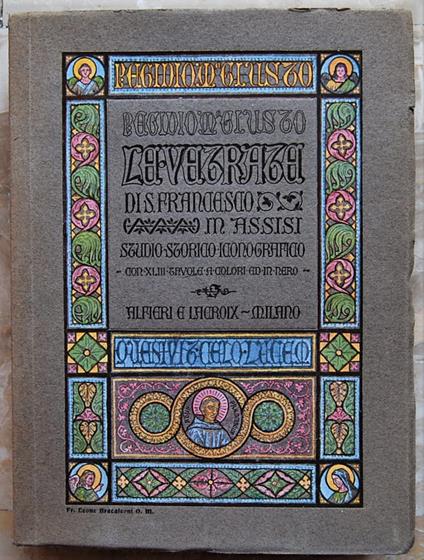 P·EGIDIO·M·GIUSTO
P·EGIDIO·M·GIUSTO
LE·VETRATE
DI·S·FRANCESCO
IN·ASSISI
STUDIO·STORICO·ICONOGRAFICO
~ CON·XLIII·TAVOLE·A·COLORI·ED·IN·NERO ~
ALFIERI E LACROIX ~ MILANO
QUESIVIT·CELO·LUCEM
Fr. Leone Bracaloni O. M.